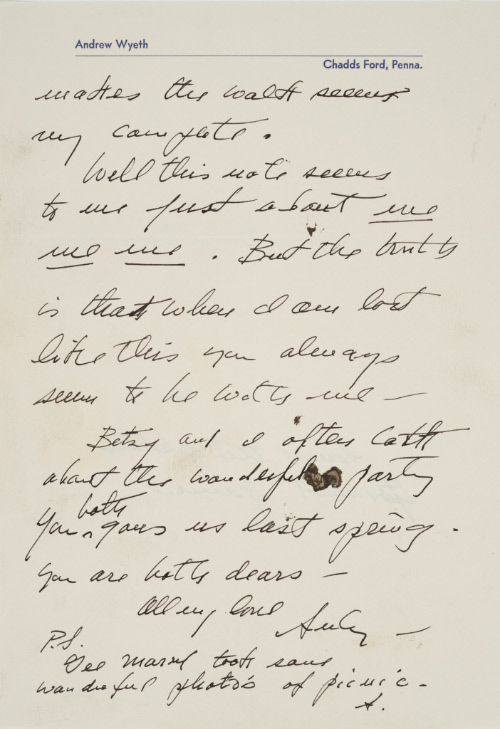 Andrew Wyeth
Chadds Ford, Penna.
makes the walk seem
my complete.
Well this note seems
to me just about me
me me. But the truth
is that when I am lost
like this you always
seem to be with me —
Betsy and I often talk
about the wonderful party
you both gave us last spring.
You are both dears —
All my love
Andy —
P.S.
Gee took some
wonderful photo's of picnic -
A.